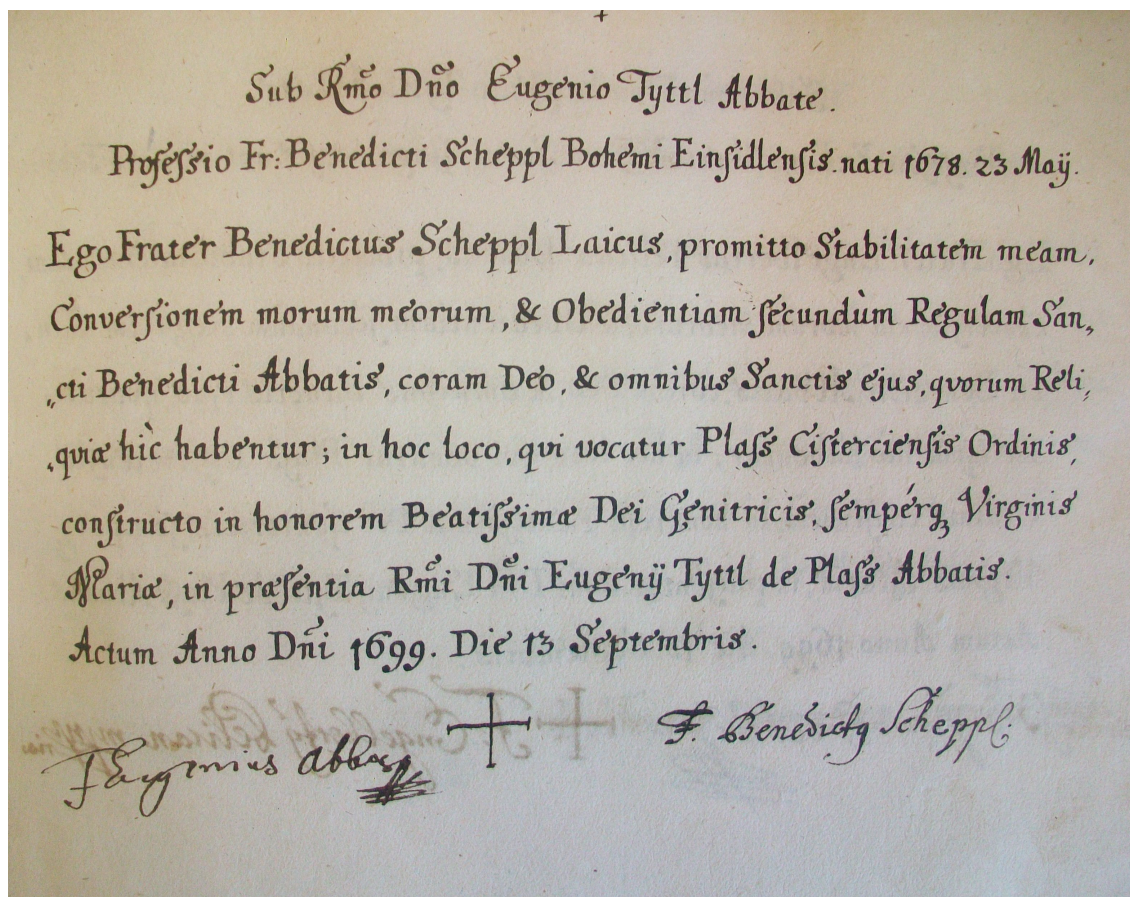 Sub Rm̃o Dño Eugenio Tyttl Abbate.
Profeſsio Fr: Benedicti Scheppl Bohemi Einſidlenſis. nati 1678. 23 Maÿ.
Ego Frater Benedictus Scheppl Laicus, promitto Stabilitatem meam,
Converſionem morum meorum, & Obedientiam ſecundùm Regulam San„
„cti Benedicti Abbatis, coram Deo, & omnibus Sanctis ejus, qvorum Reli„
„quiæ hìc habentur; in hoc loco, qvi vocatur Plaſs Ciſtercienſis Ordinis,
conſtructo in honorem Beatiſsimæ Dei Genitricis, ſempérq₃ Virginis
Mariæ, in præſentia Rm̃i Dñi Eugenÿ Tyttl de Plaſs Abbatis.
Actum Anno Dñi 1699. Die 13 Septembris.
F Eugenius Abbas
F. Benedictꝰ Scheppl.